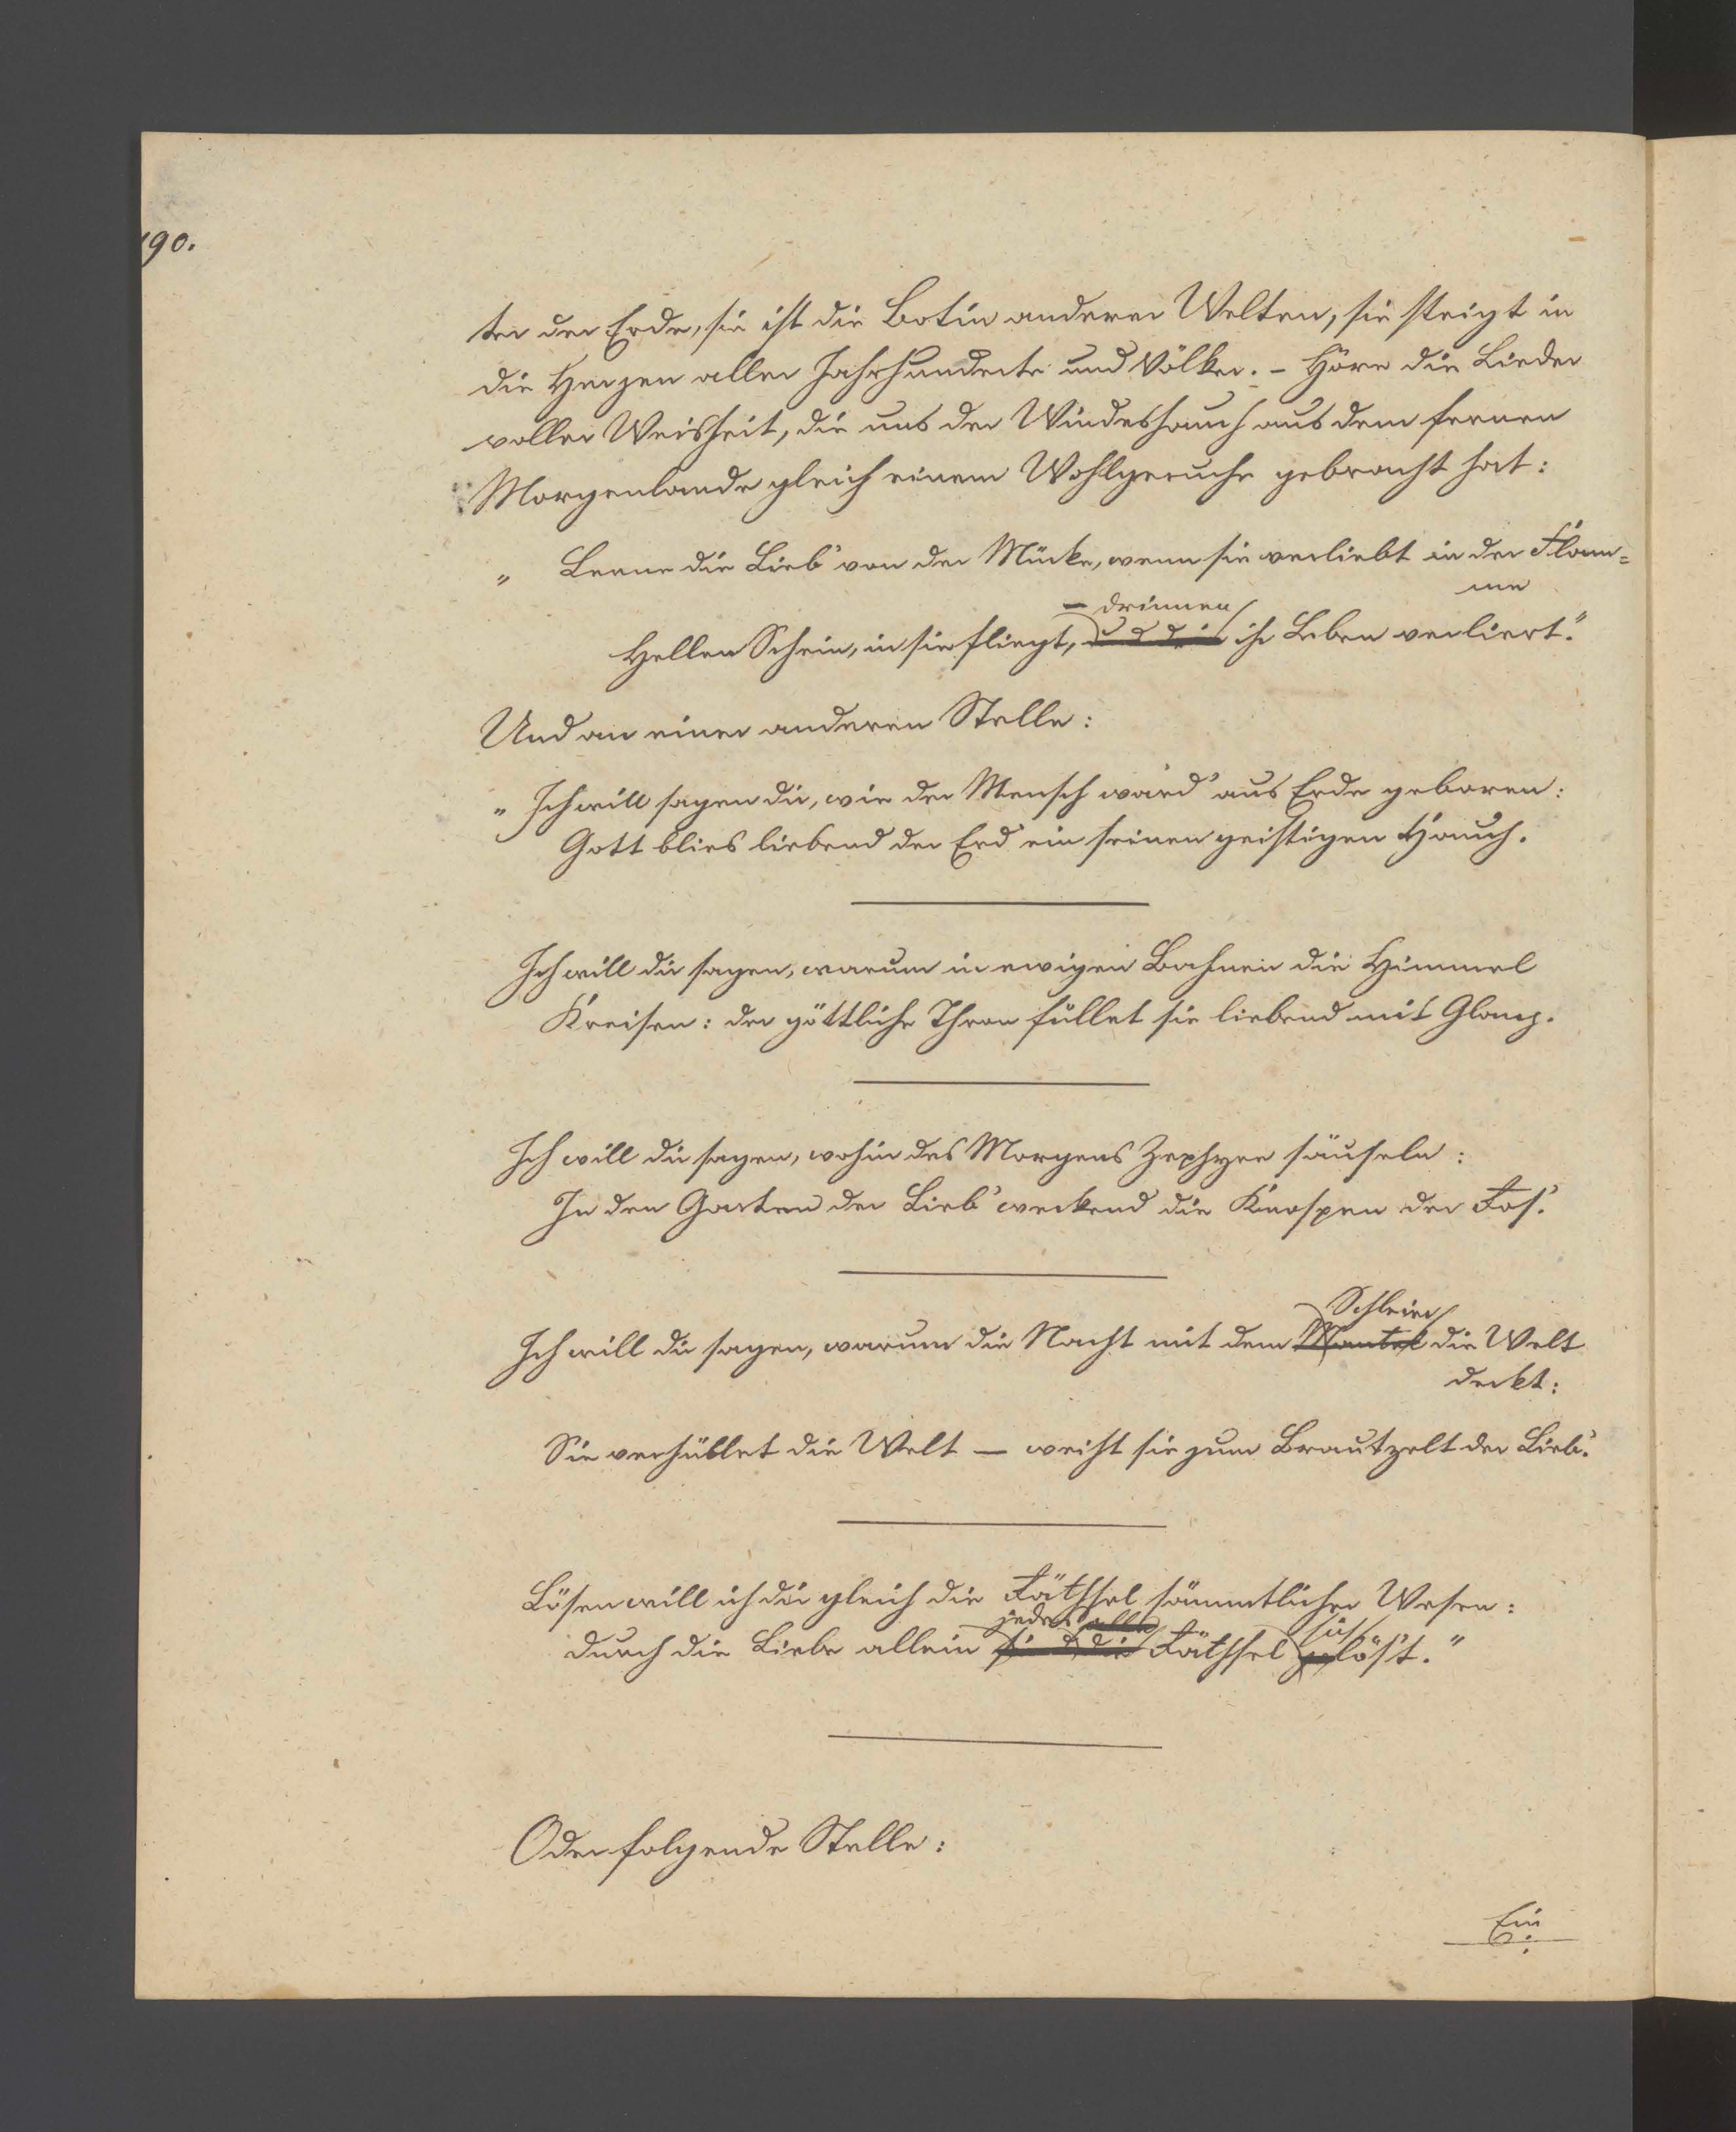 190.
ter der Erde, sie ist die Botin anderer Welten, sie steigt in
die Herzen aller Jahrhunderte und Völker. – Höre die Lieder
voller Weisheit, die uns der Windeshauch aus dem fernen
Morgenlande gleich einem Wohlgeruche gebracht hat:
„ Lerne die Lieb' von der Mücke, wenn sie verliebt in der Flam=
me
– drinnen
Hellen Schein, in sie fliegt, ihr Leben verliert."
Und an einer anderen Stelle:
„ Ich will sagen dir, wie der Mensch ward' aus Erde geboren:
Gott blies liebend der Erd' ein seinen geistigen Hauch.
Ich will dir sagen, warum in ewigen Bahnen die Himmel
Kreisen: der göttliche Thron füllet sie liebend mit Glanz.
Ich will dir sagen, wohin des Morgens Zephyre säuseln:
In den Garten der Lieb' weckend die Knospen der Ros'.
Schleier
Ich will dir sagen, warum die Nacht mit dem Mantel die Welt
deckt:
Sie verhüllet die Welt – weiht sie zum Brautzelt der Lieb'.
Lösen will ich dir gleich die Räthsel sämmtlicher Wesen:
jedes alle sich
durch die Liebe allein sind die Räthsel gelös't."
Oder folgende Stelle:
Ein